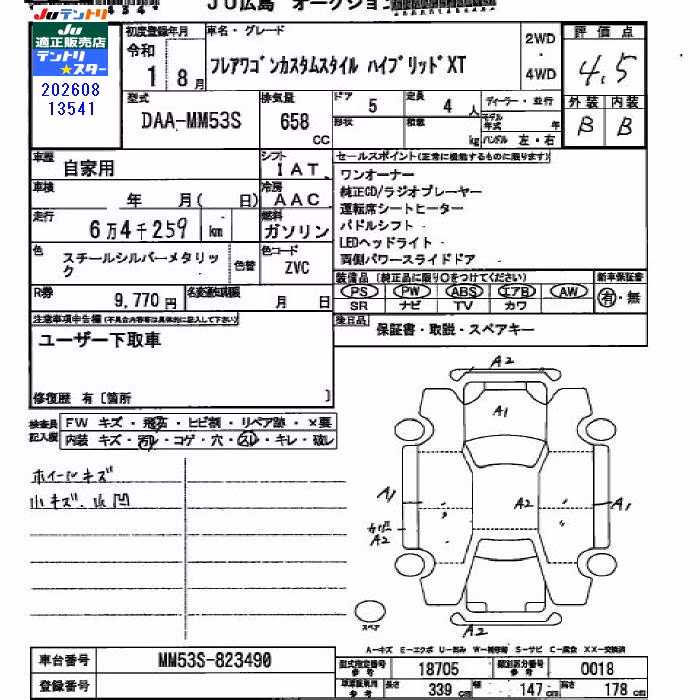 4344 JU広島 オークション
JUテントリ
JU
適正販売店
テントリ
★スター
202608
13541
初度登録年月
令和
1 8月
車名・グレード
フレアワゴンカスタムスタイル ハイブリッドXT
2WD
・
4WD
評価点
4.5
外装 内装
B B
型式
DAA-MM53S
排気量
658
CC
ドア 5
定員 4 人
形状
積載 kg
ディーラー・並行
モデル年式 年
ハンドル 左・右
車歴 自家用
シフト
I A T
車検 年 月( 日)
冷房
A A C
走行 6万4千259 km
燃料
ガソリン
色 スチールシルバーメタリッ
ク
色替
色コード
ZVC
R券 9,770円
名変通知期限 月 日
セールスポイント(正常に機能するものに限ります)
ワンオーナー
純正CD/ラジオプレーヤー
運転席シートヒーター
パドルシフト
LEDヘッドライト
両側パワースライドドア
装備品(純正品に限り○をつけてください)
PS PW ABS エアB AW
SR ナビ TV カワ
新車保証書
有・無
後日品 保証書・取説・スペアキー
注意事項申告欄(不具合内容等は具体的に記入して下さい)
ユーザー下取車
修復歴 有〔箇所 〕
検査員
記入欄
FW キズ・飛石・ヒビ割・リペア跡・×要
内装 キズ・汚レ・コゲ・穴・スレ・キレ・破レ
ホイールキズ
小キズ、凹
A2
A1
A1
A2
A1
A2
A2
スペア
A-キズ E-エクボ U-凹み W-補修跡 S-サビ C-腐食 XX-交換済
車台番号 MM53S-823490
登録番号
型式指定番号
参考
18705
類別区分番号
参考
0018
車体証期用
参考
長さ 339 cm
幅 147 cm
高さ 178 cm